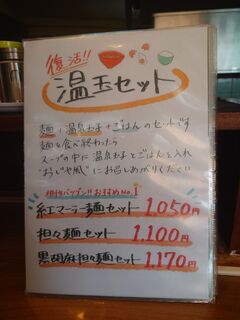 復活!!
温玉セット
麺+温泉玉子+ごはんのセットです
麺を食べ終わったら
スープの中に温泉玉子とごはんを入れ
"おじや風"にお召しあがりください
相性バツグン!! おすすめNo.1
紅マーラー麺セット 1,050円
担々麺セット 1,100円
黒胡麻担々麺セット 1,170円